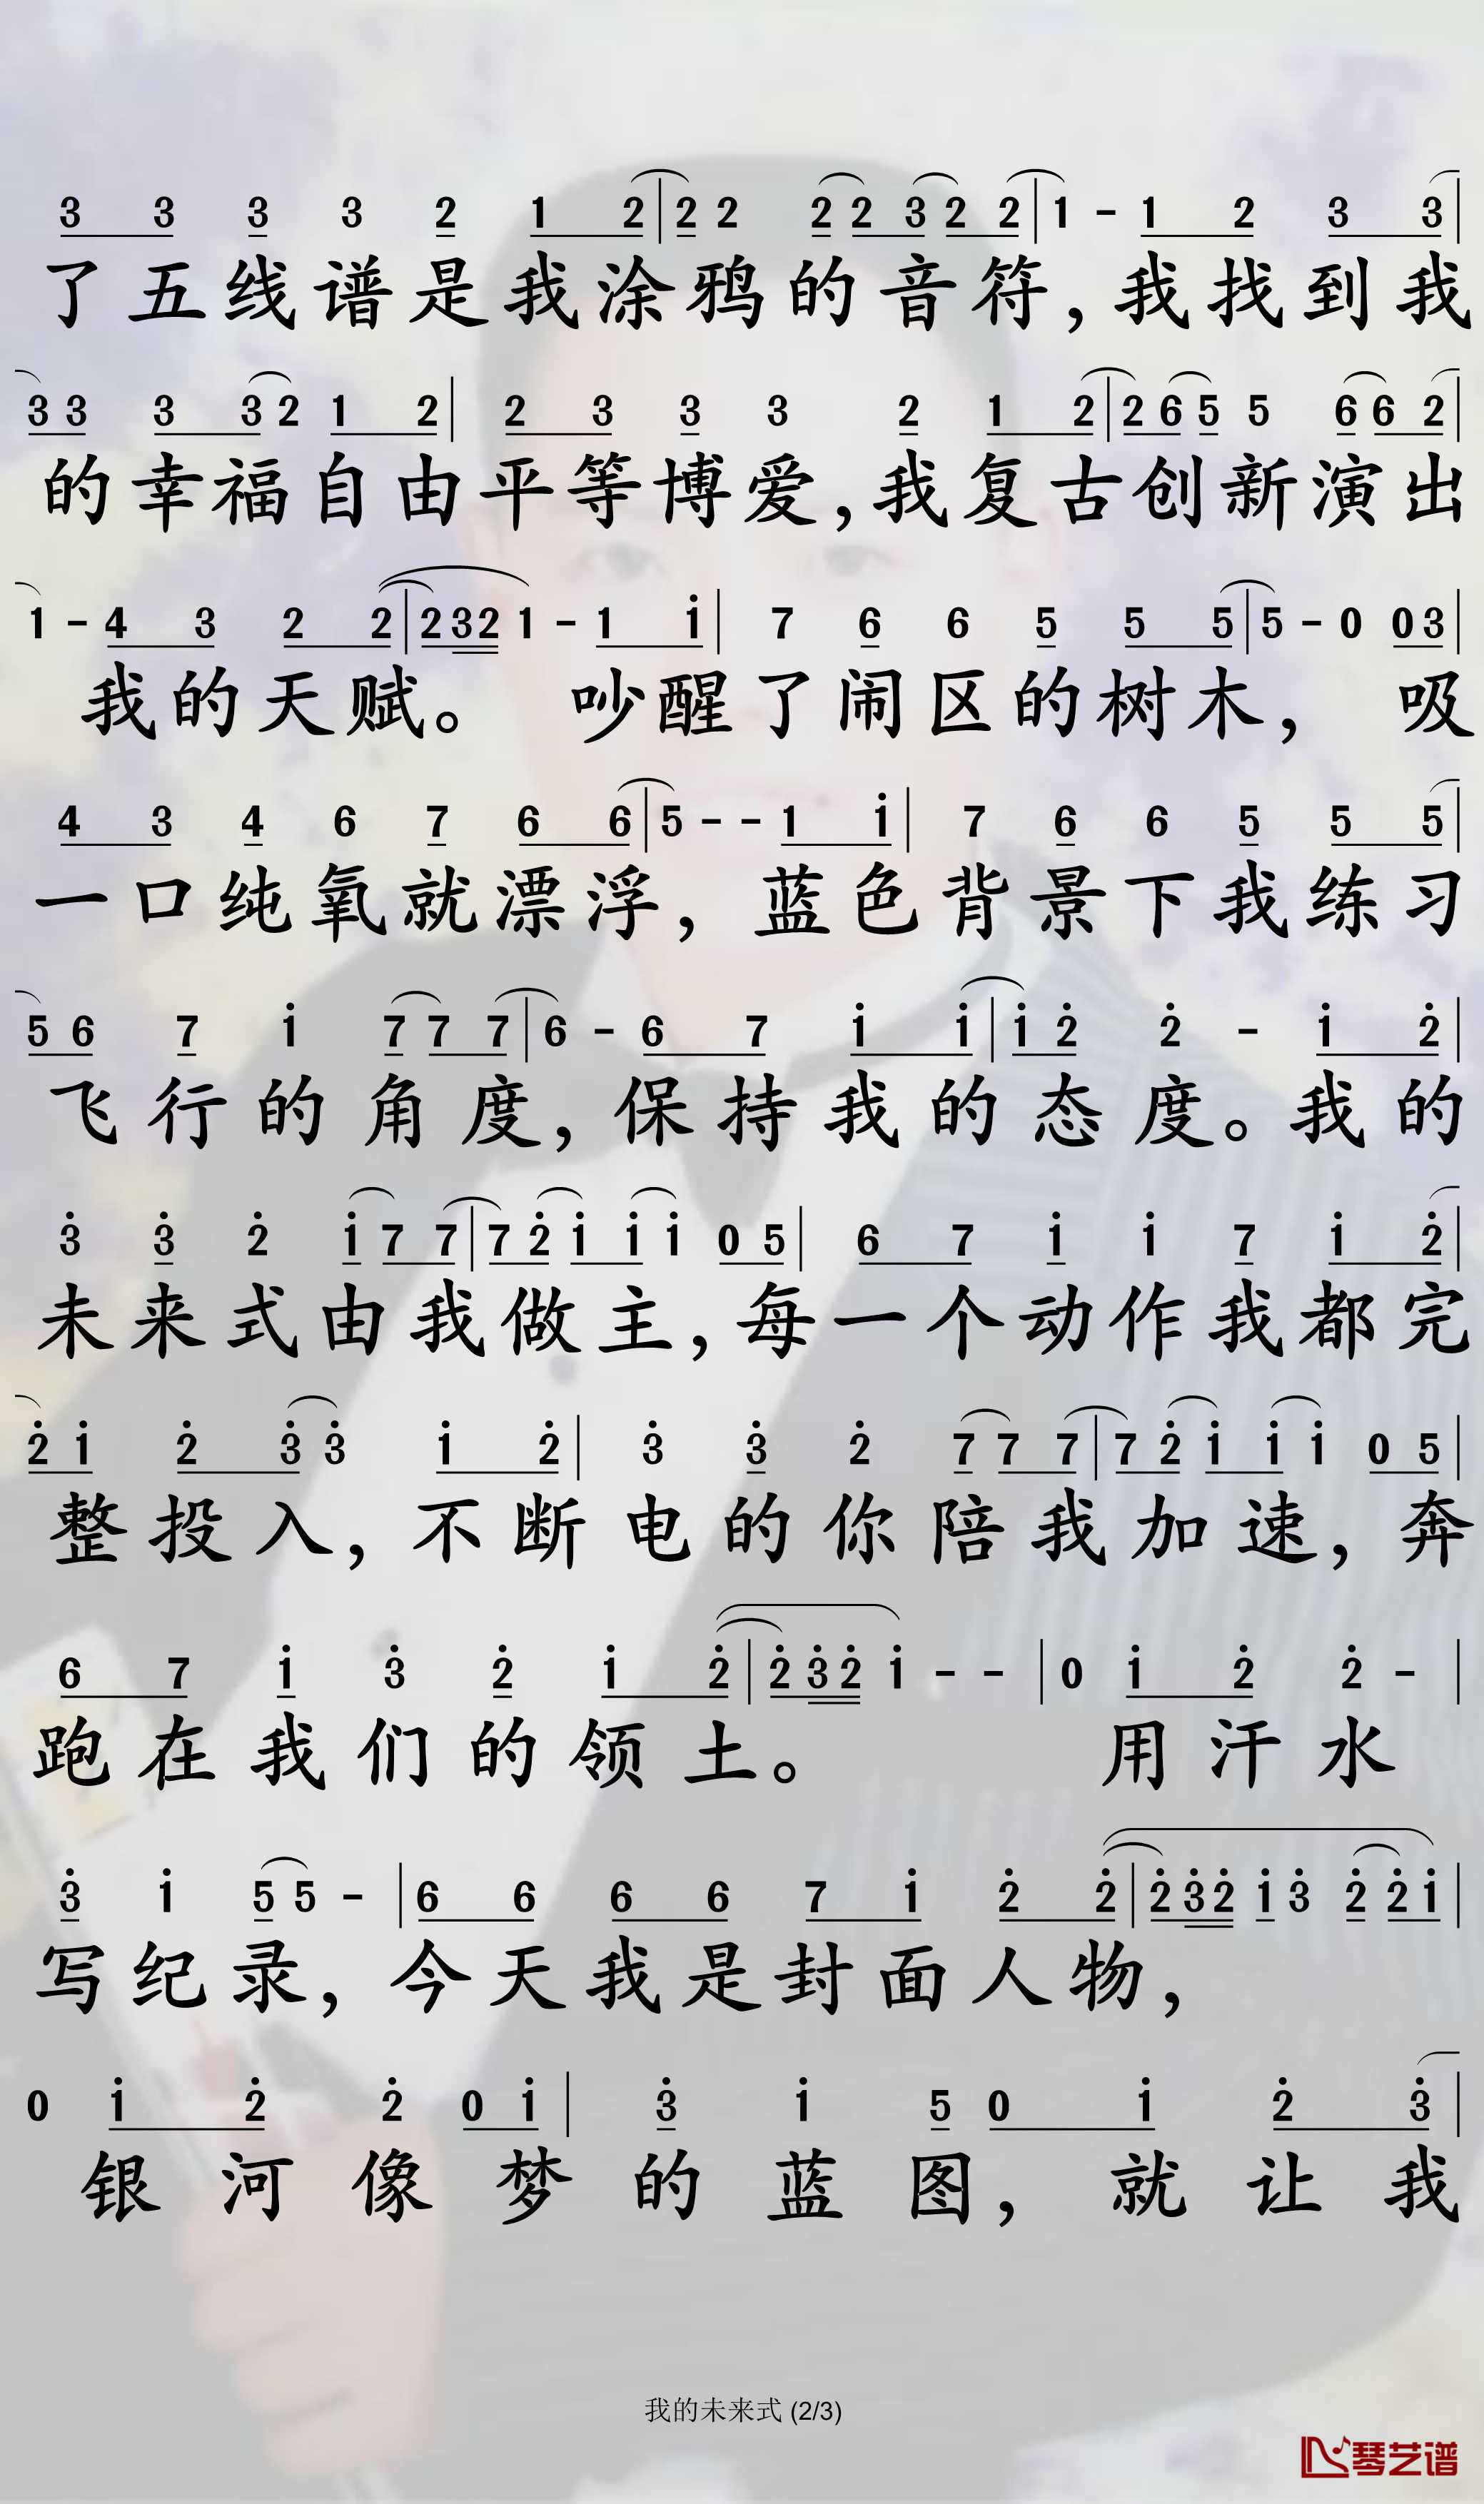 3 3 3 3 2 1 2 | 2 2 2 2 3 2 2 | 1 - 1 2 3 3 |
了五线谱是我涂鸦的音符,我找到我
3 3 3 3 2 1 2 | 2 3 3 3 2 1 2 | 2 6 5 5 6 6 2 |
的幸福自由平等博爱,我复古创新演出
1 - 4 3 2 2 | 2 3 2 1 - 1 i | 7 6 6 5 5 5 | 5 - 0 0 3 |
我的天赋。 吵醒了闹区的树木, 吸
4 3 4 6 7 6 6 | 5 - - 1 i | 7 6 6 5 5 5 |
一口纯氧就漂浮, 蓝色背景下我练习
5 6 7 i 7 7 7 | 6 - 6 7 i i | i 2̇ 2̇ - i 2̇ |
飞行的角度,保持我的态度。我的
3̇ 3̇ 2̇ i 7 7 | 7 2̇ i i i 0 5 | 6 7 i i 7 i 2̇ |
未来式由我做主,每一个动作我都完
2̇ i 2̇ 3̇ 3̇ i 2̇ | 3̇ 3̇ 2̇ 7 7 7 | 7 2̇ i i i 0 5 |
整投入,不断电的你陪我加速,奔
6 7 i 3̇ 2̇ i 2̇ | 2̇ 3̇ 2̇ i - - | 0 i 2̇ 2̇ - |
跑在我们的领土。 用汗水
3̇ i 5 5 - | 6 6 6 6 7 i 2̇ 2̇ | 2̇ 3̇ 2̇ i 3̇ 2̇ 2̇ i |
写纪录,今天我是封面人物,
0 i 2̇ 2̇ 0 i | 3̇ i 5 0 i 2̇ 3̇ |
银河像梦的蓝图,就让我
我的未来式 (2/3)
琴艺谱